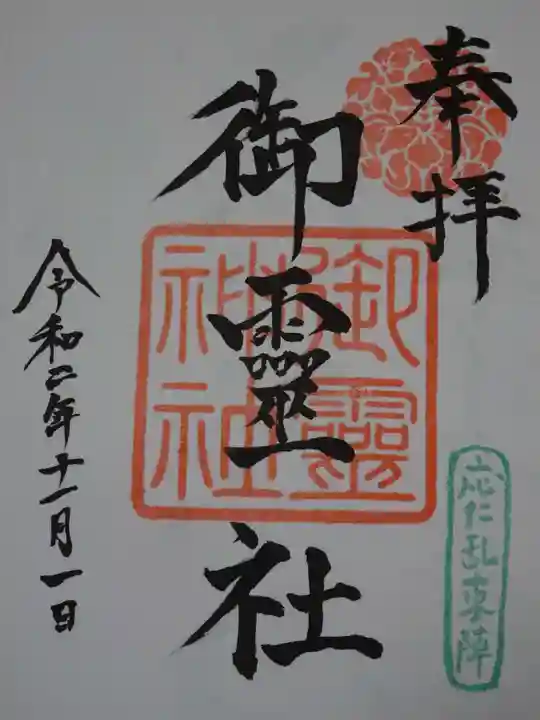 奉拝
御靈社
御靈
神社
応仁乱東陣
令和二年十一月一日